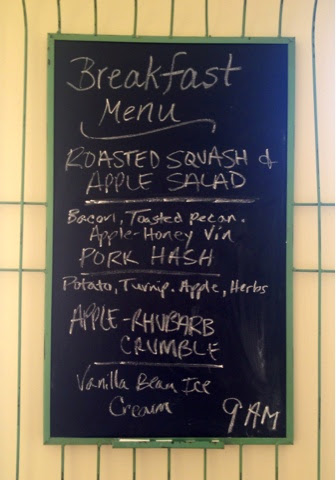 Breakfast
Menu
ROASTED SQUASH &
APPLE SALAD
Bacon, Toasted pecan.
Apple-Honey Vin
PORK HASH
Potato, Turnip. Apple, Herbs
APPLE-RHUBARB
CRUMBLE
Vanilla Bean Ice
Cream
9 AM